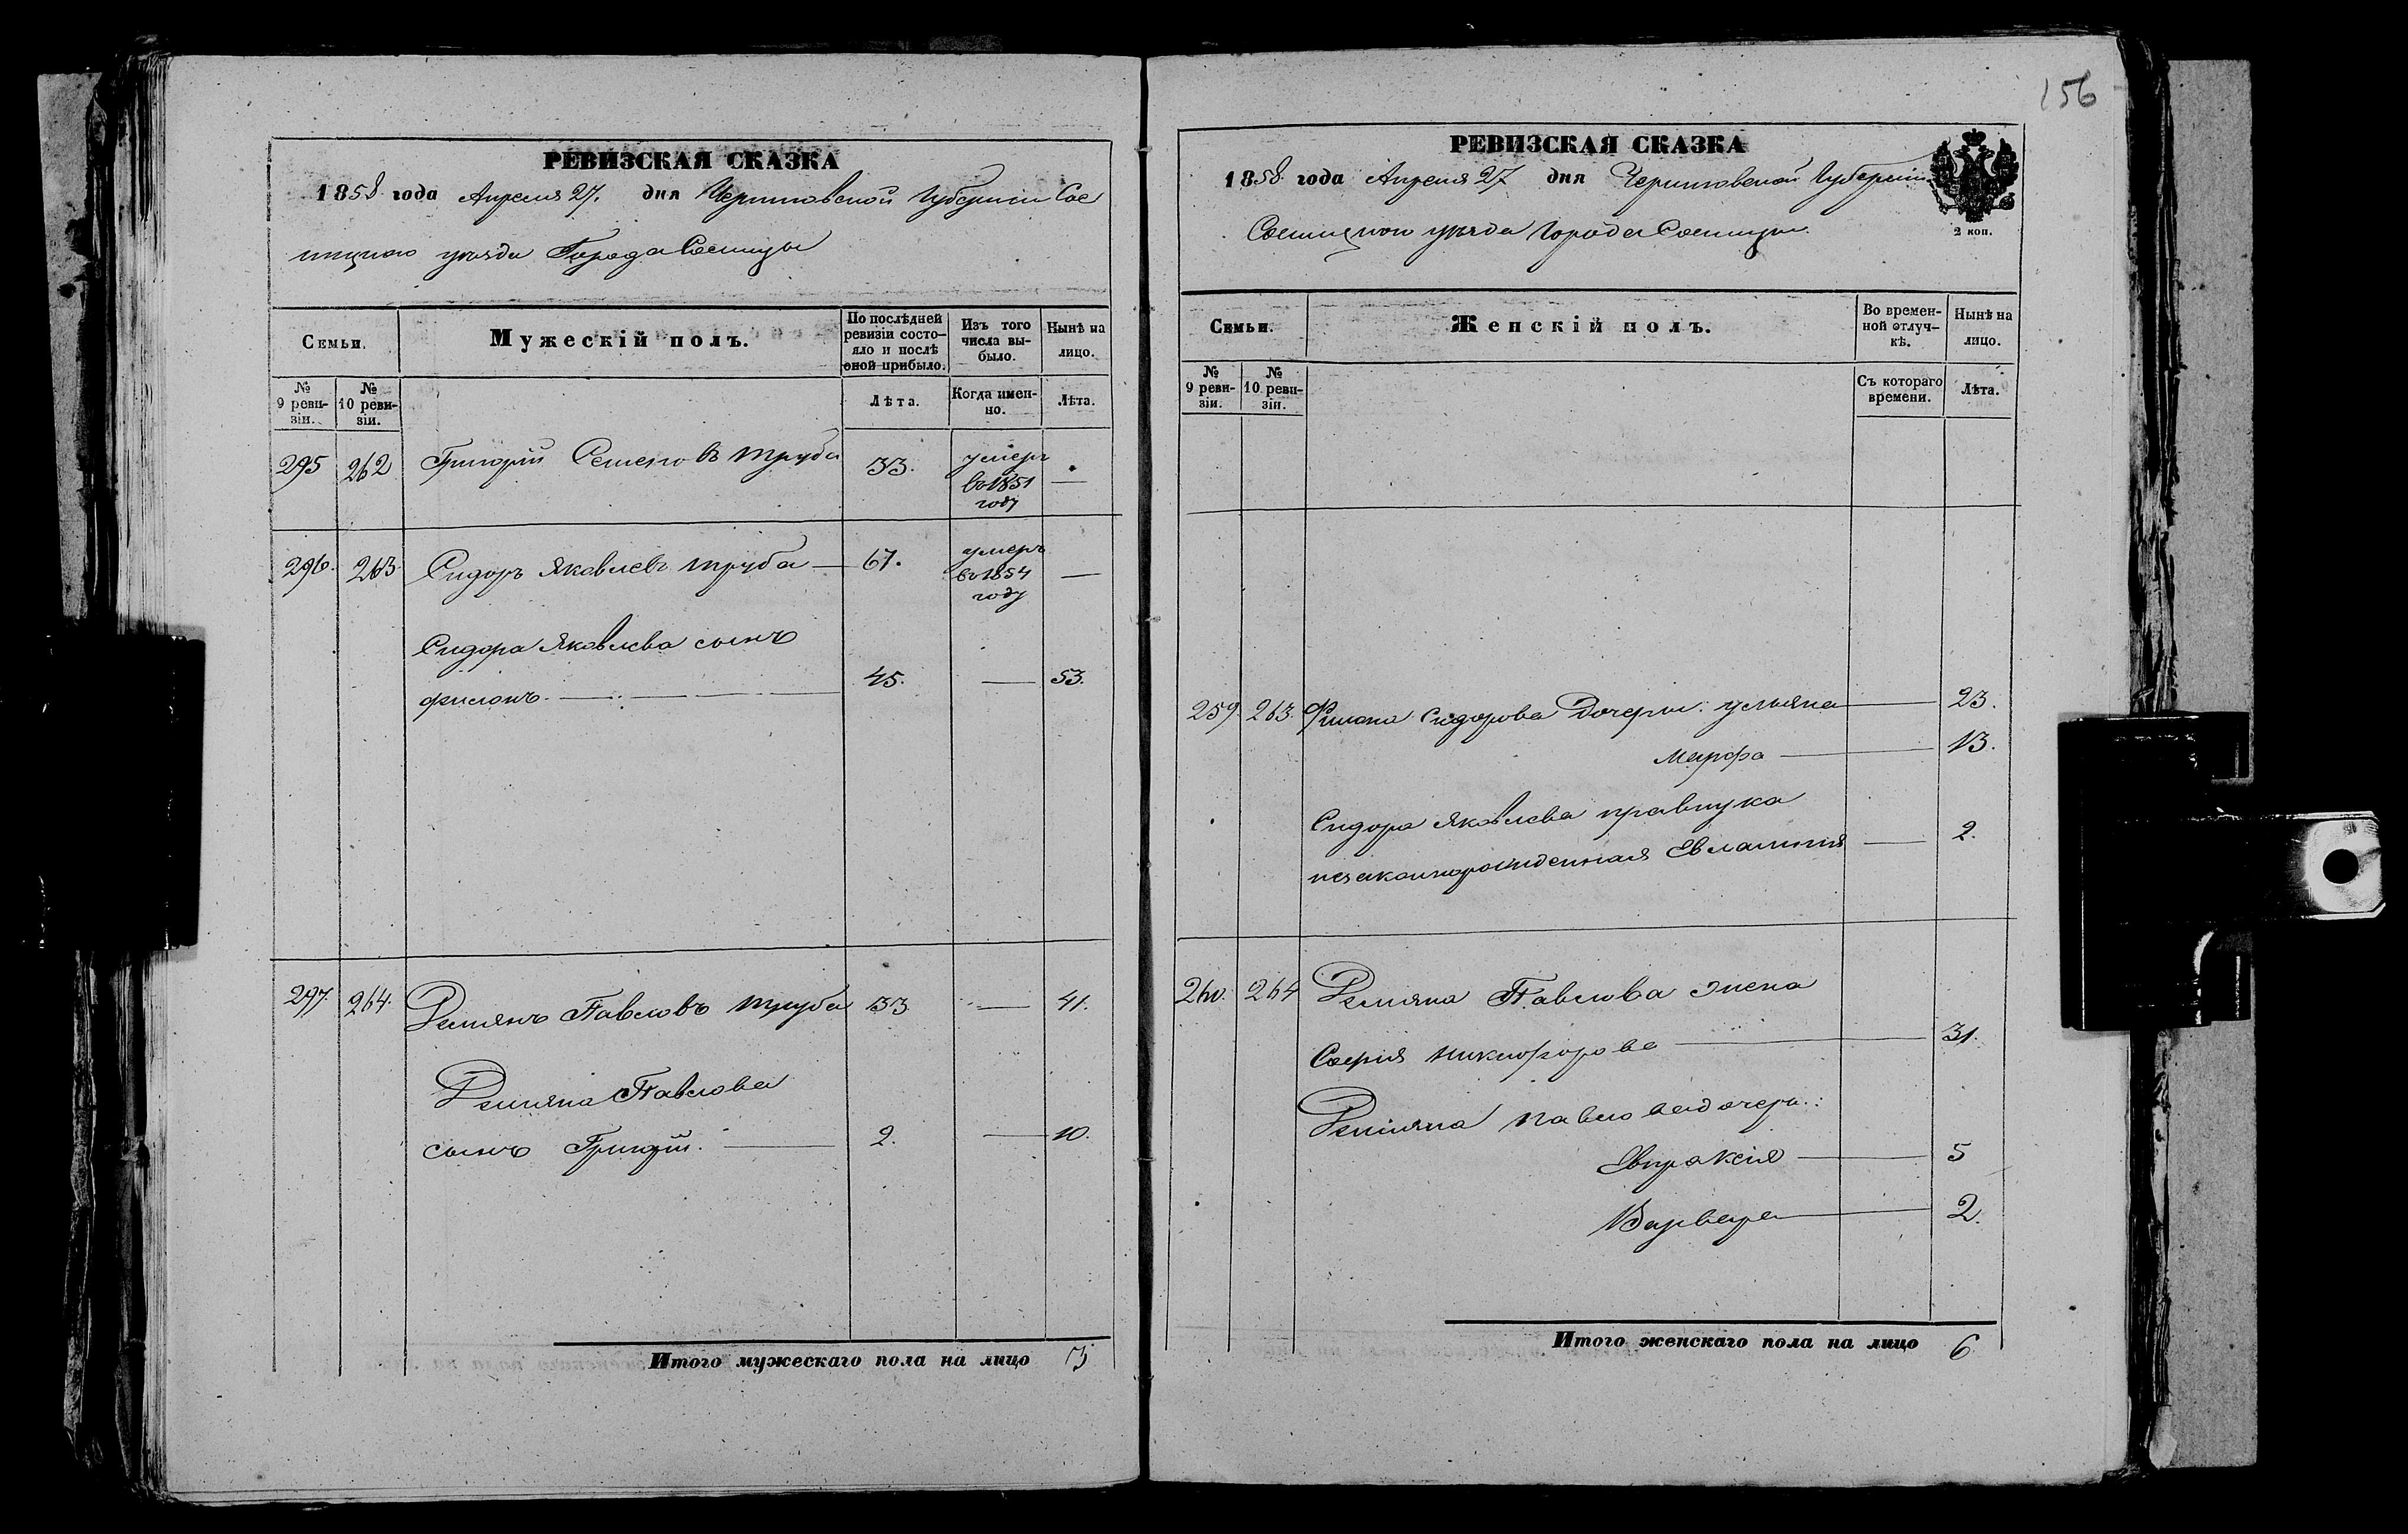 156
РЕВИЗСКАЯ СКАЗКА
1858 года Апреля 27. дня Черниговской Губернии Сос
ницкого уезда Города Сосницы
Семьи.
Мужескій полъ.
По послѣдней ревизіи состо-яло и послѣ оной прибыло.
Изъ того числа вы-было.
Нынѣ на лицо.
№ 9 реви-зіи.
№ 10 реви-зіи.
Лѣта.
Когда имен-но.
Лѣта.
295 262 Григорій Семеновъ Труба 33. умеръ —
во 1851
году
296. 263. Сидоръ Яковлевъ труба — 67. умеръ —
въ 1854
году
Сидора Яковлева сынъ
филонъ. — 45. — 53.
297. 264. Демянъ Павловъ труба 33 — 41.
Демяна Павлова
сынъ Григорій. — 2. — 10.
Итого мужескаго пола на лицо 3
РЕВИЗСКАЯ СКАЗКА
1858 года Апреля 27 дня Черниговской Губернии
Сосницкого уезда Города Сосницы.
2 коп.
Семьи.
Женскій полъ.
Во времен-ной отлуч-кѣ.
Нынѣ на лицо.
№ 9 реви-зіи.
№ 10 реви-зіи.
Съ котораго времени.
Лѣта.
259. 263. Филона Сидорова Дочери: ульяна — 23.
марфа — 13.
Сидора Яковлева правнука
незаконнорожденная Евлампия — 2.
260. 264 Демяна Павлова жена
Софія никифорова — 31.
Демяна Павлова дочери:
Евпраксія — 5
Варвара — 2.
Итого женскаго пола на лицо 6